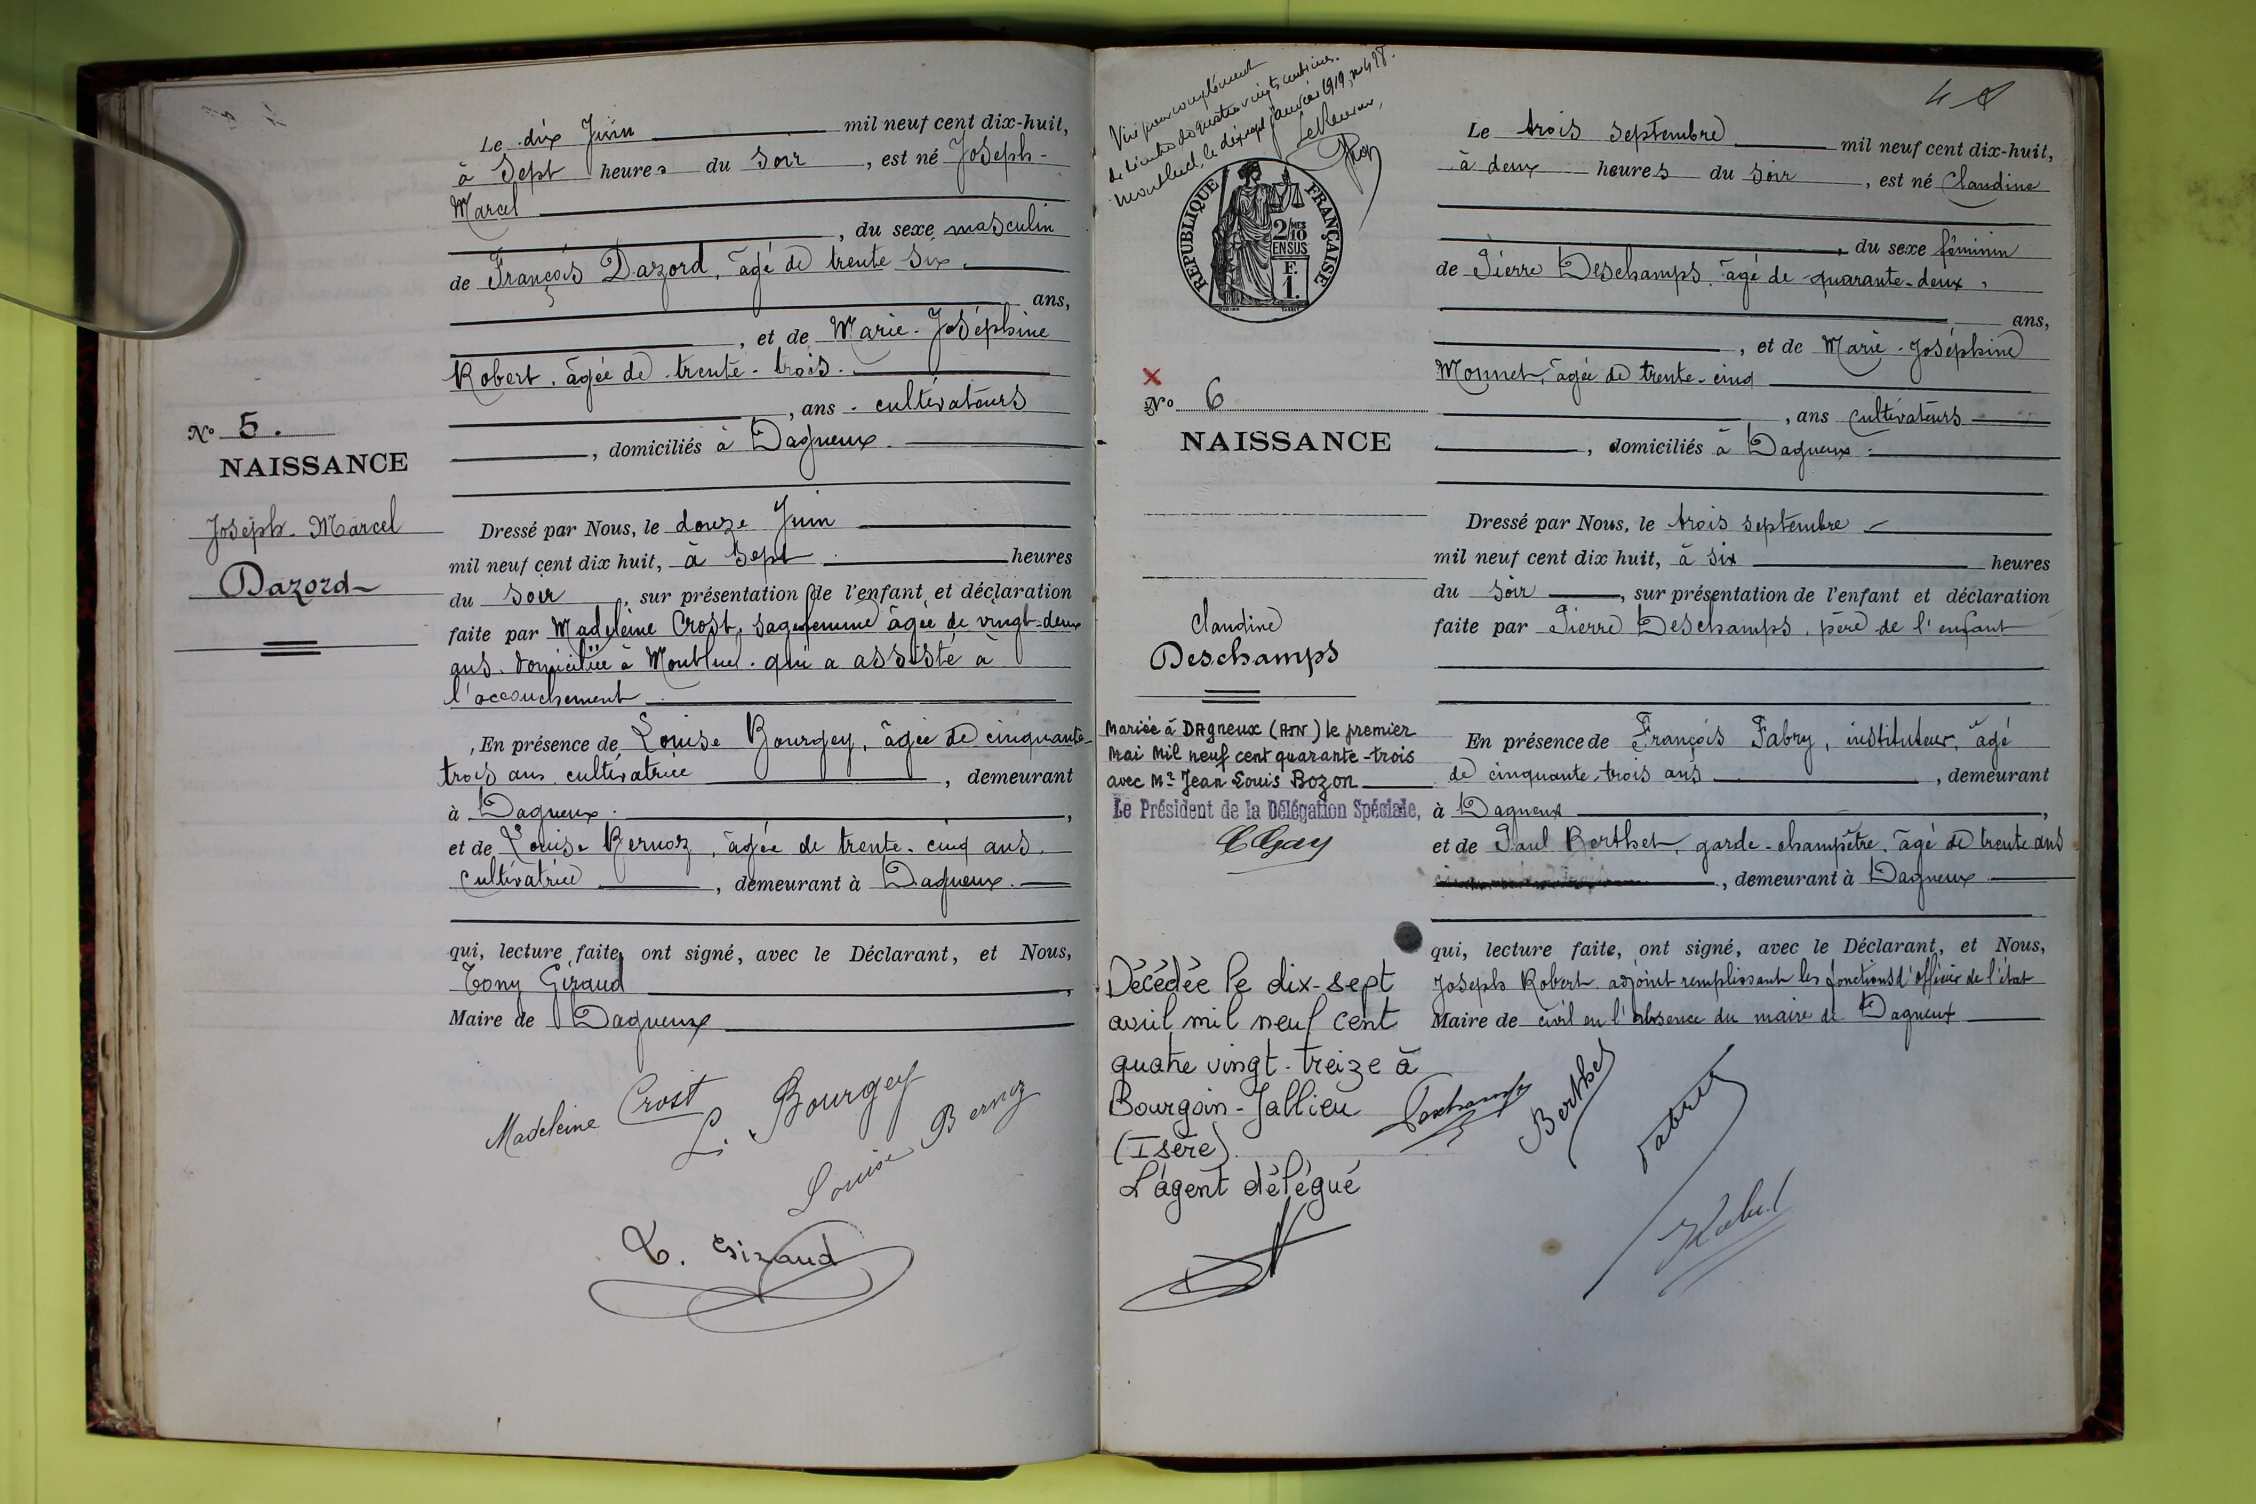 Le dix Juin mil neuf cent dix-huit,
à Sept heures du Soir, est né Joseph-
Marcel
, du sexe masculin
de François Dazord, âgé de trente Six,
ans,
, et de Marie-Joséphine
Robert, âgée de trente-trois.
, ans. cultivateurs
, domiciliés à Dagneux.
Nº 5.
NAISSANCE
Joseph-Marcel
Dazord
Dressé par Nous, le douze Juin
mil neuf cent dix huit, à Sept heures
du Soir, sur présentation de l'enfant et déclaration
faite par Madeleine Crost, sagefemme âgée de vingt-deux
ans. domiciliée à Montluel. qui a assisté à
l'accouchement
, En présence de Louise Bourgey, âgée de cinquante-
trois ans cultivatrice, demeurant
à Dagneux.,
et de Louise Bernoz, âgée de trente-cinq ans.
Cultivatrice, demeurant à Dagneux.
qui, lecture faite, ont signé, avec le Déclarant, et Nous,
Tony Giraud,
Maire de Dagneux
Madeleine Crost
L. Bourgey
Louise Bernoz
T. Giraud
Visé pour complément
de timbre de quatre vingts centimes.
Montluel, le dix sept janvier 1919, nº 498.
Le Receveur,
RÉPUBLIQUE FRANÇAISE
2/10 MES
EN SUS
F.
1.
4
Le trois Septembre mil neuf cent dix-huit,
à deux heures du Soir, est né Claudine
, du sexe féminin
de Pierre Deschamps. âgé de quarante-deux,
ans,
, et de Marie-Joséphine
Monnet, âgée de trente-cinq
, ans cultivateurs
, domiciliés à Dagneux.
Nº 6
NAISSANCE
Claudine
Deschamps
Mariée à DAgneux (AIN) le premier
Mai Mil neuf cent quarante-trois
avec Mr Jean Louis Bozon
Le Président de la Délégation Spéciale,
Décédée le dix-sept
avril mil neuf cent
quatre vingt-treize à
Bourgoin-Jallieu
(Isère).
L'agent délégué
Dressé par Nous, le trois septembre
mil neuf cent dix huit, à six heures
du soir, sur présentation de l'enfant et déclaration
faite par Pierre Deschamps, père de l'enfant
En présence de François Fabry, instituteur, âgé
de cinquante-trois ans, demeurant
à Dagneux,
et de Paul Berthet, garde-champêtre, âgé de trente ans
, demeurant à Dagneux
qui, lecture faite, ont signé, avec le Déclarant, et Nous,
Joseph Robert adjoint remplissant les fonctions d'officier de l'état
Maire de civil en l'absence du maire de Dagneux
Deschamps
Berthet
Fabry
Robert